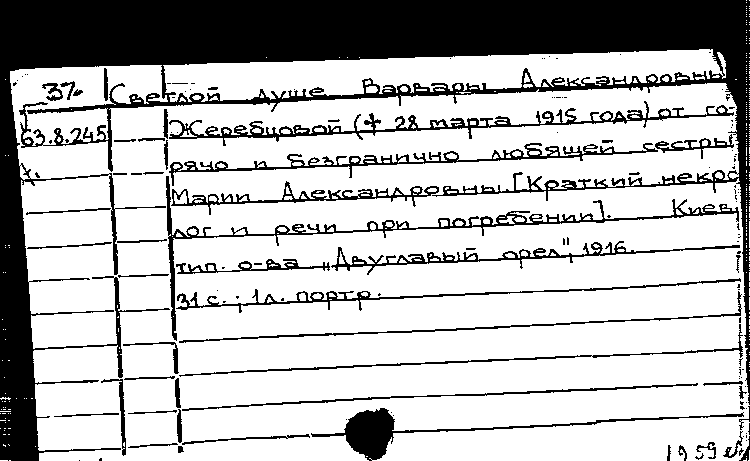 37 Светлой душе Варвары Александровны
63.8.245 Жеребцовой († 28 марта 1915 года) от го-
х. рячо и безгранично любящей сестры
Марии Александровны. [Краткий некро
лог и речи при погребении]. Киев,
тип. о-ва „Двуглавый орел", 1916.
31 с.; 1л. портр.
1959